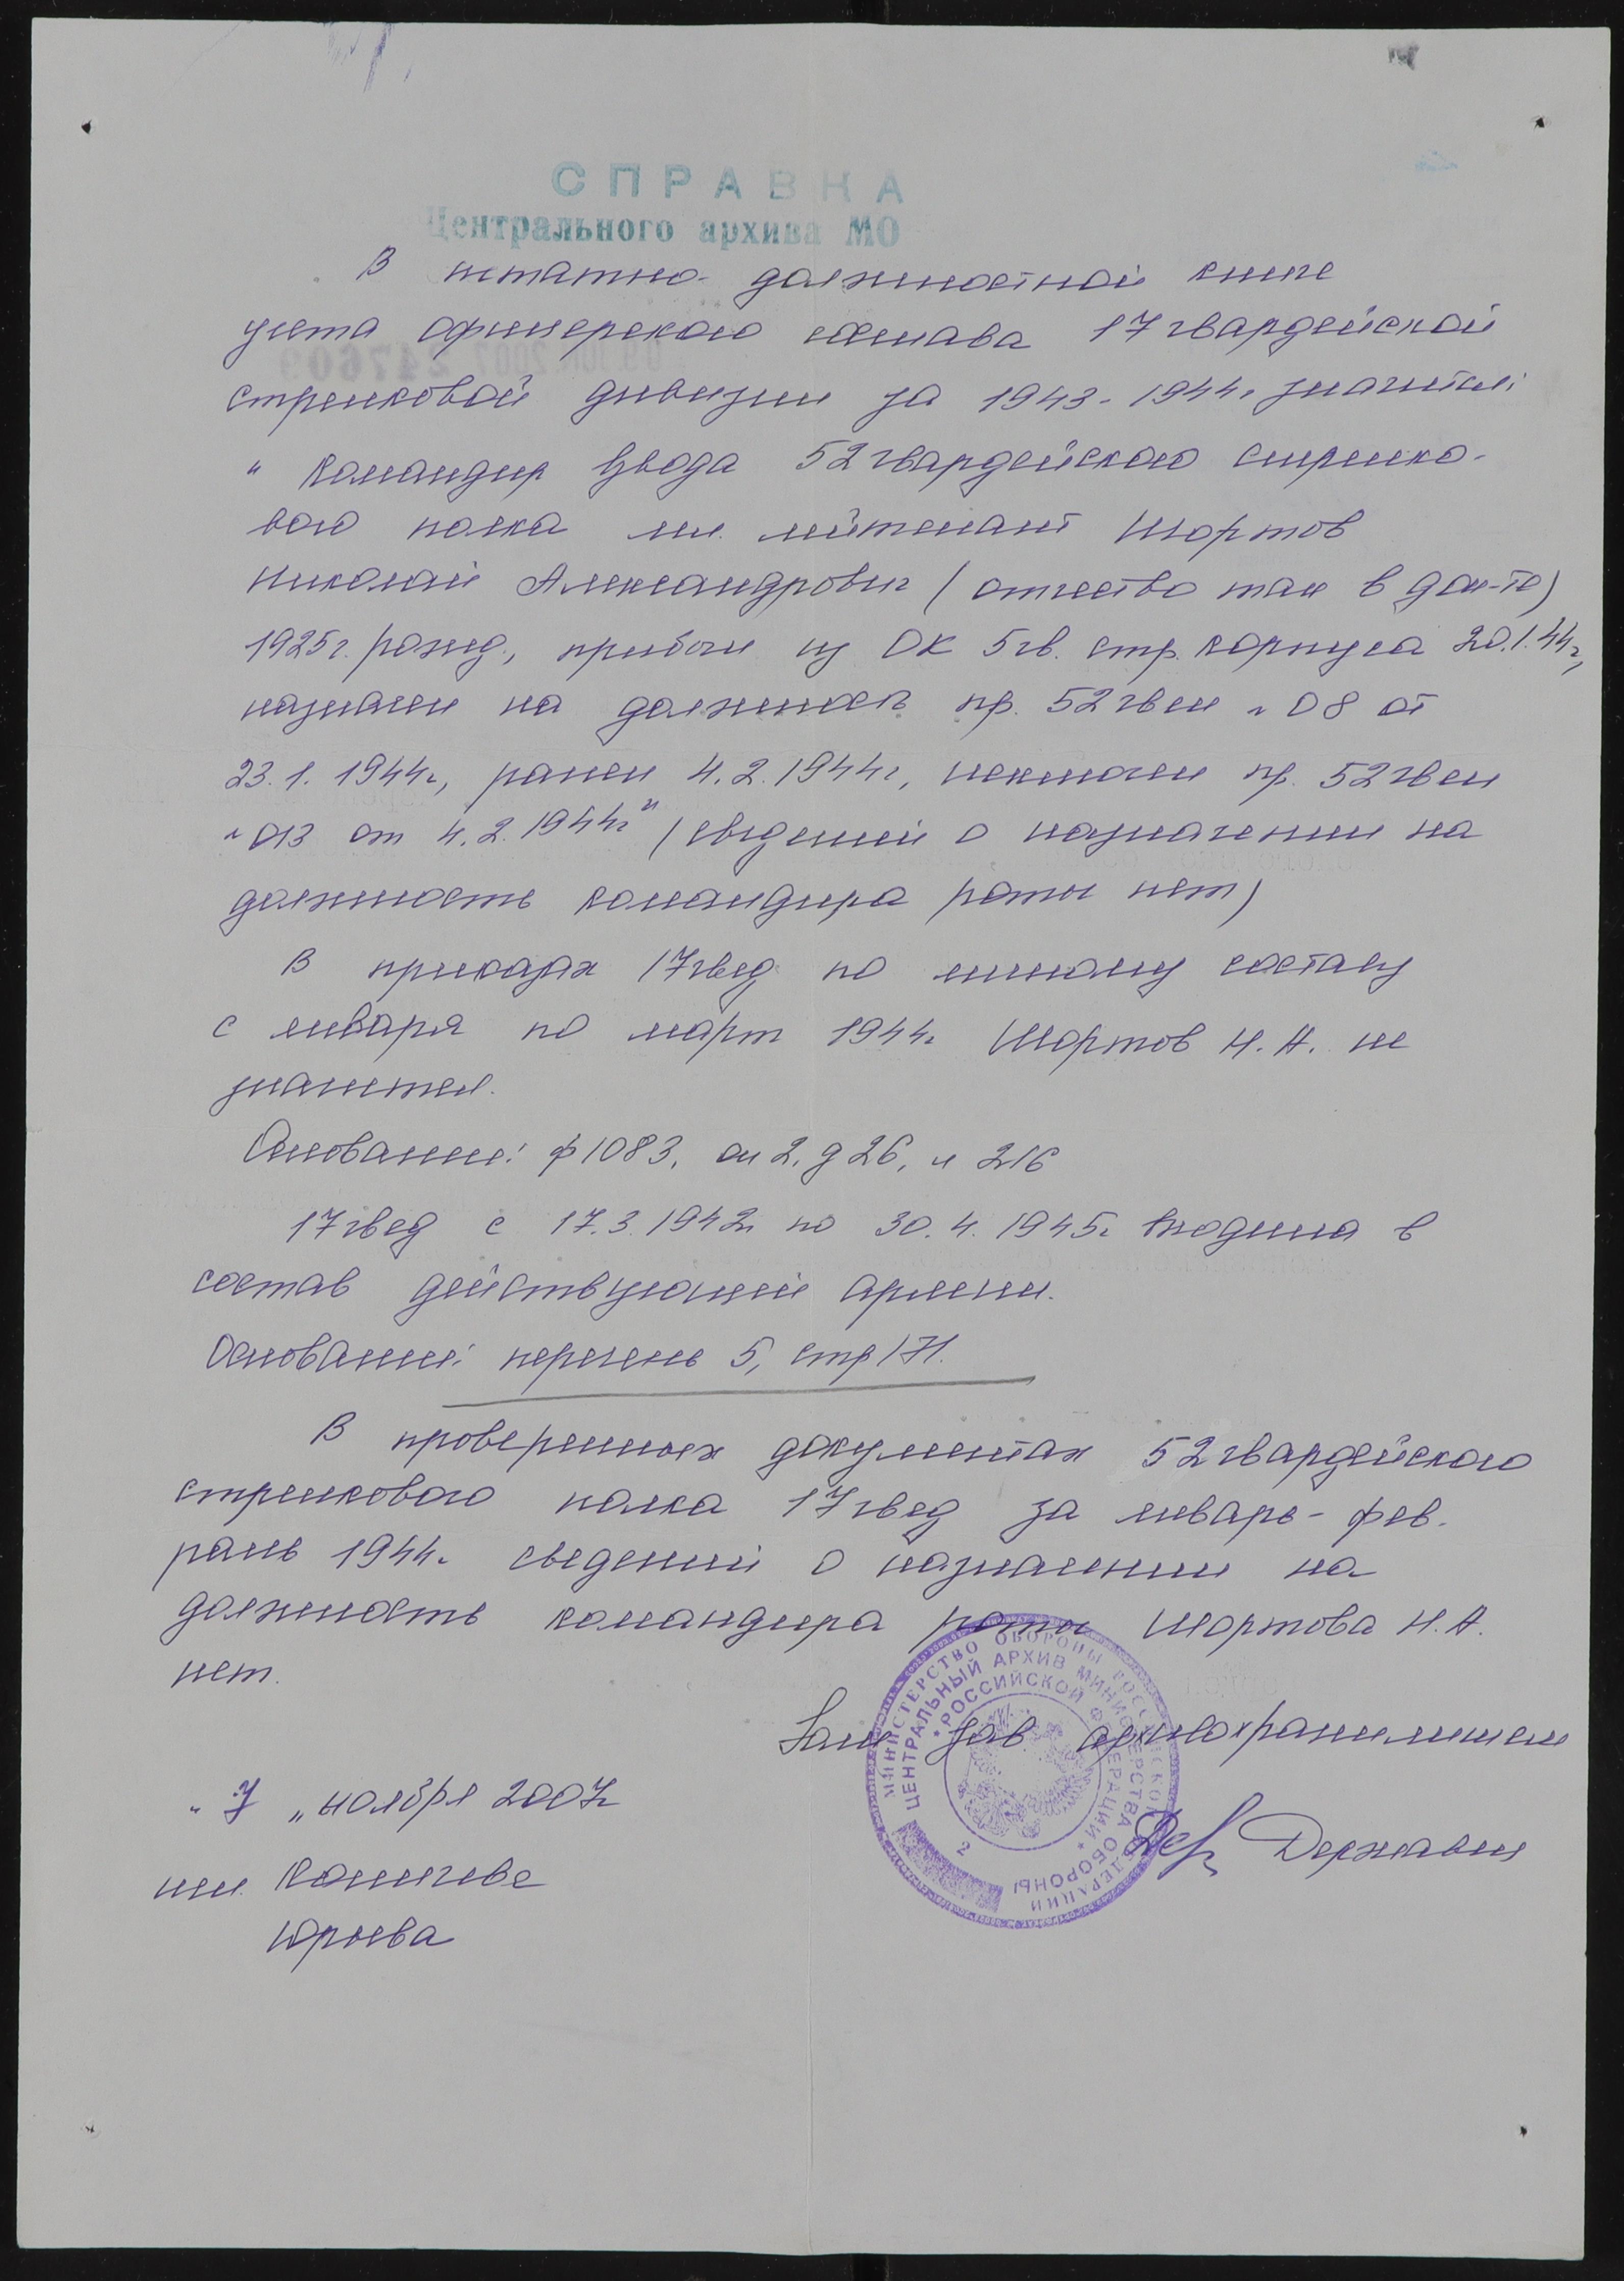 СПРАВКА
Центрального архива МО
В штатно-должностной книге
учета офицерского состава 17 гвардейской
стрелковой дивизии за 1943-1944г. значится:
"Командир взвода 52 гвардейского стрелко-
вого полка мл. лейтенант Шортов
Николай Александрович (отчество так в док-те)
1925г. рожд., прибыл из ОК 5 гв. стр. корпуса 20.1.44г,
назначен на должность пр. 52 гвсп № 08 от
23.1.1944г, ранен 4.2.1944г, исключен пр. 52 гвсп
№ 013 от 4.2.1944г" (сведений о назначении на
должность командира роты нет)
В приказах 17 гвсд по личному составу
с января по март 1944г Шортов Н.А. не
значится.
Основание: ф 1083, оп 2, д 26, л 216
17 гвсд с 17.3.1942г по 30.4.1945г входила в
состав действующей армии.
Основание: перечень 5, стр 171.
В проверенных документах 52 гвардейского
стрелкового полка 17 гвсд за январь-фев-
раль 1944г сведений о назначении на
должность командира роты Шортова Н.А.
нет.
Зам зав архивохранилищем
"7" ноября 2007г
Юрьева
МИНИСТЕРСТВО ОБОРОНЫ РОССИЙСКОЙ ФЕДЕРАЦИИ
ЦЕНТРАЛЬНЫЙ АРХИВ МИНИСТЕРСТВА ОБОРОНЫ
* РОССИЙСКОЙ ФЕДЕРАЦИИ *
2